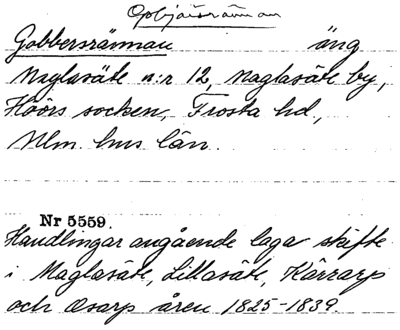 Gobbersrännan äng
Maglasäte n:r 12, Maglasäte by,
Höörs socken, Frosta hd,
Mlm. hus län.
Nr 5559.
Handlingar angående laga skifte
i Maglasäte, Lillasäte, Kärrarp
och Osarp åren 1825-1839.